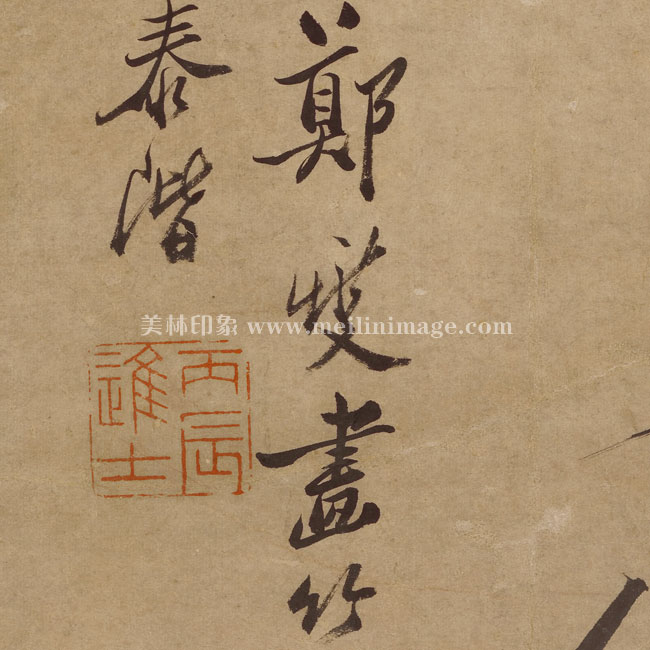 鄭燮畫竹
泰階
丙辰
進士
美林印象 www.meilinimage.com